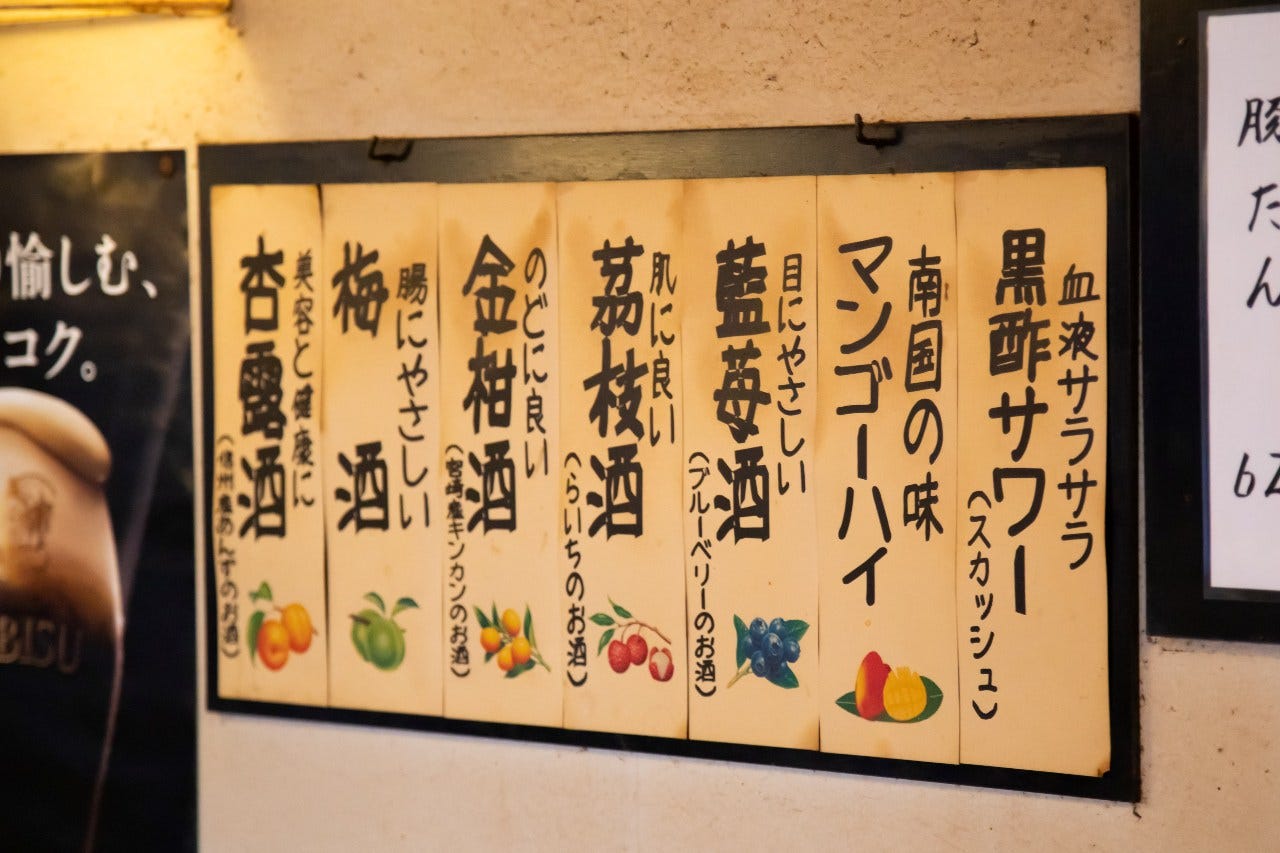 血液サラサラ
黒酢サワー
(スカッシュ)
南国の味
マンゴーハイ
目にやさしい
藍苺酒
(ブルーベリーのお酒)
肌に良い
茘枝酒
(らいちのお酒)
のどに良い
金柑酒
(宮崎産キンカンのお酒)
腸にやさしい
梅酒
美容と健康に
杏露酒
(信州産あんずのお酒)
愉しむ、
コク。
たん